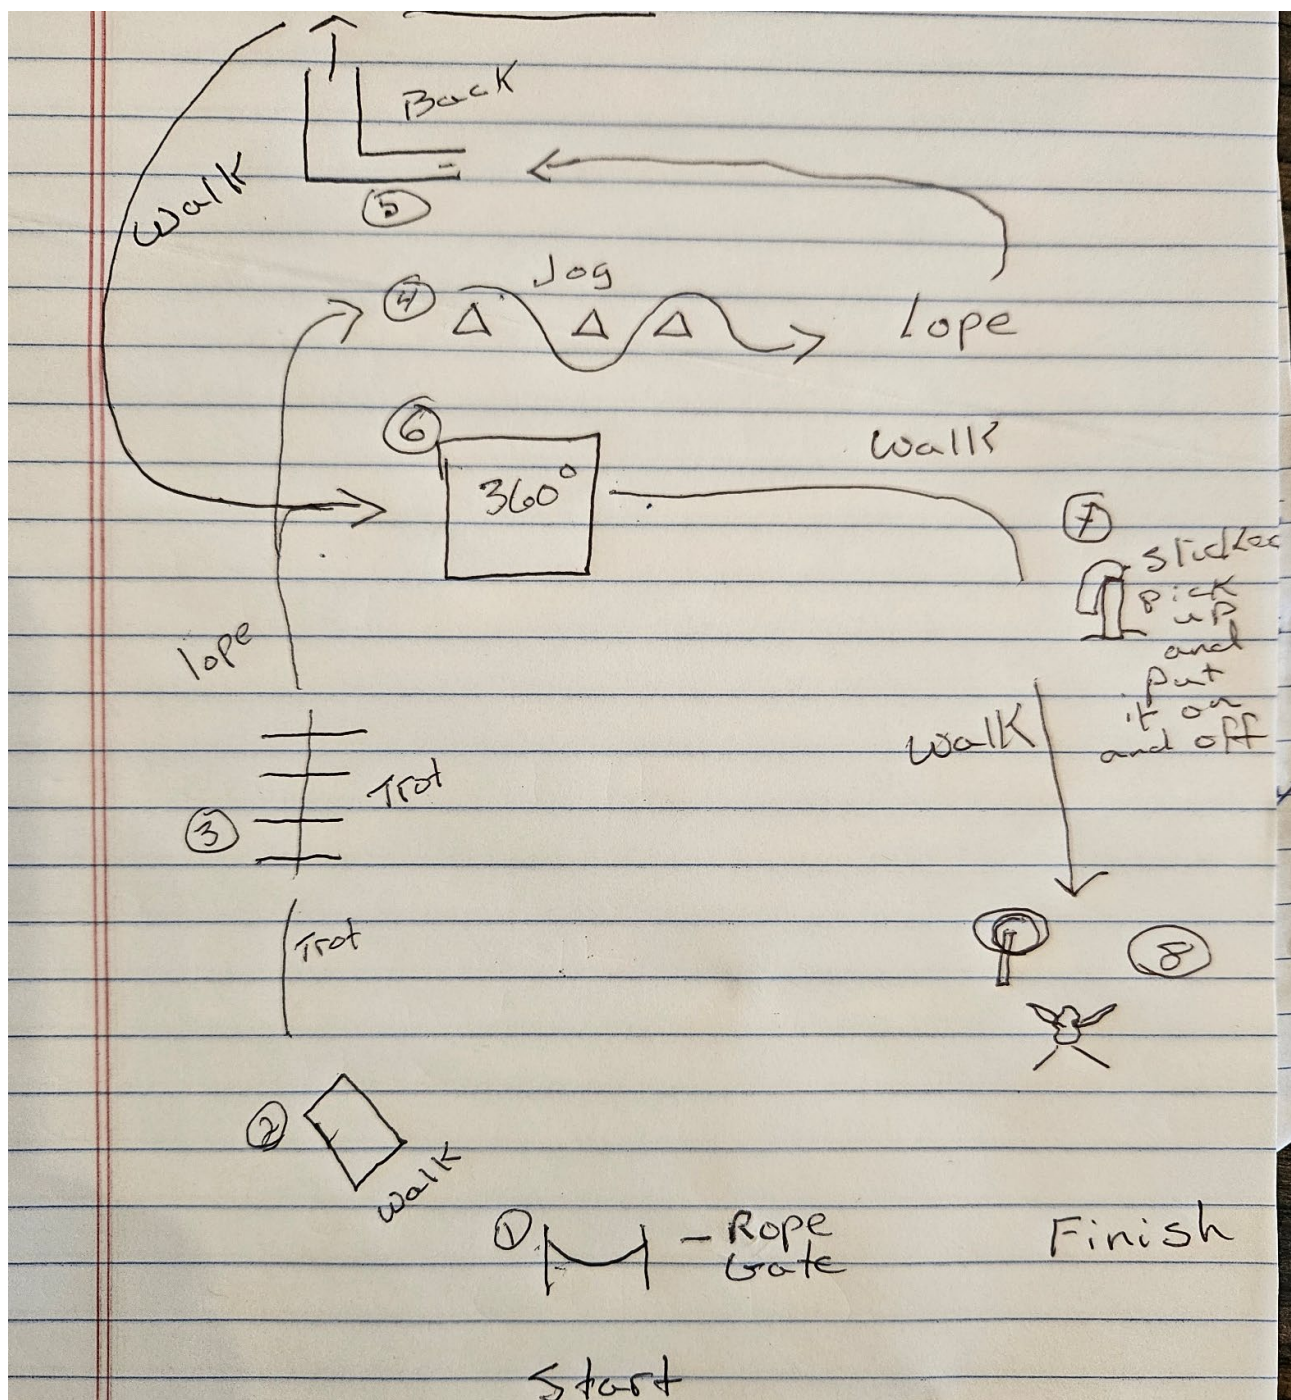 Back
Walk
5
Jog
4
lope
6
360°
walk
7
slicker
pick
up
and
put
it on
and off
lope
walk
Trot
3
Trot
8
2
walk
1
- Rope
Gate
Finish
Start